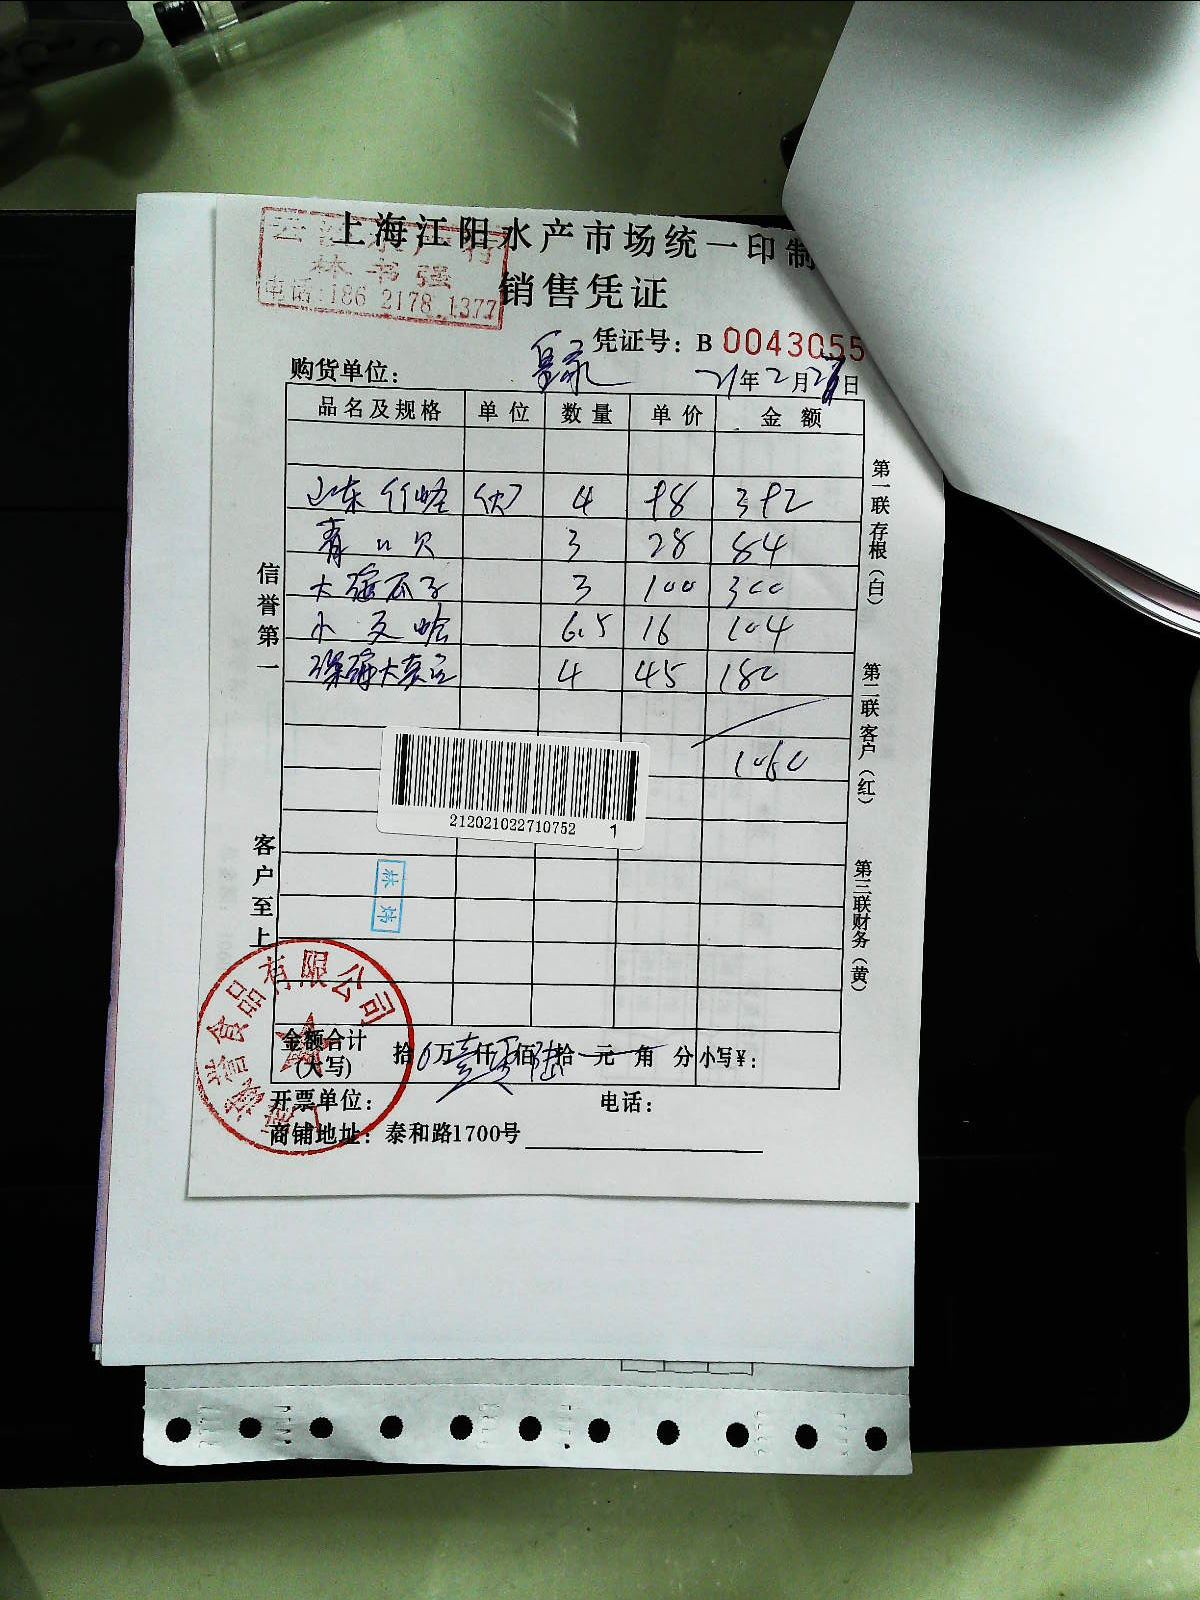 上海江阳水产市场统一印制
林书强
电话:186 2178 1377
销售凭证
凭证号: B 0043055
购货单位:
21年2月 日
品名及规格 单位 数量 单价 金额
山东竹蛏 4 98 392
青口贝 3 28 84
大海瓜子 3 100 300
小文蛤 6.5 16 104
深海大 4 45 180
1060
212021022710752 1
信誉第一
客户至上
第一联存根(白)
第二联客户(红)
第三联财务(黄)
食品有限公司
金额合计
(大写)
拾 万壹仟零佰陆拾元角分小写¥:
开票单位: 电话:
商铺地址: 泰和路1700号